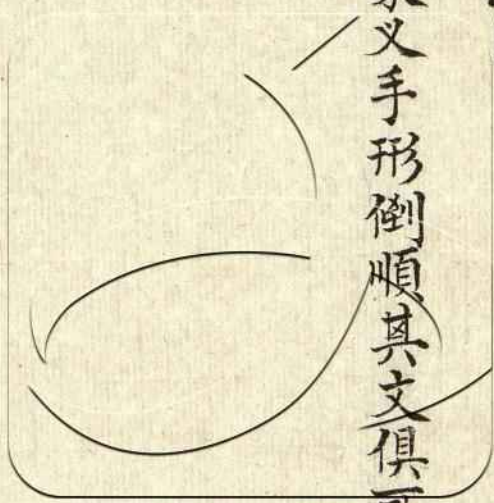 叉手形倒順其文俱